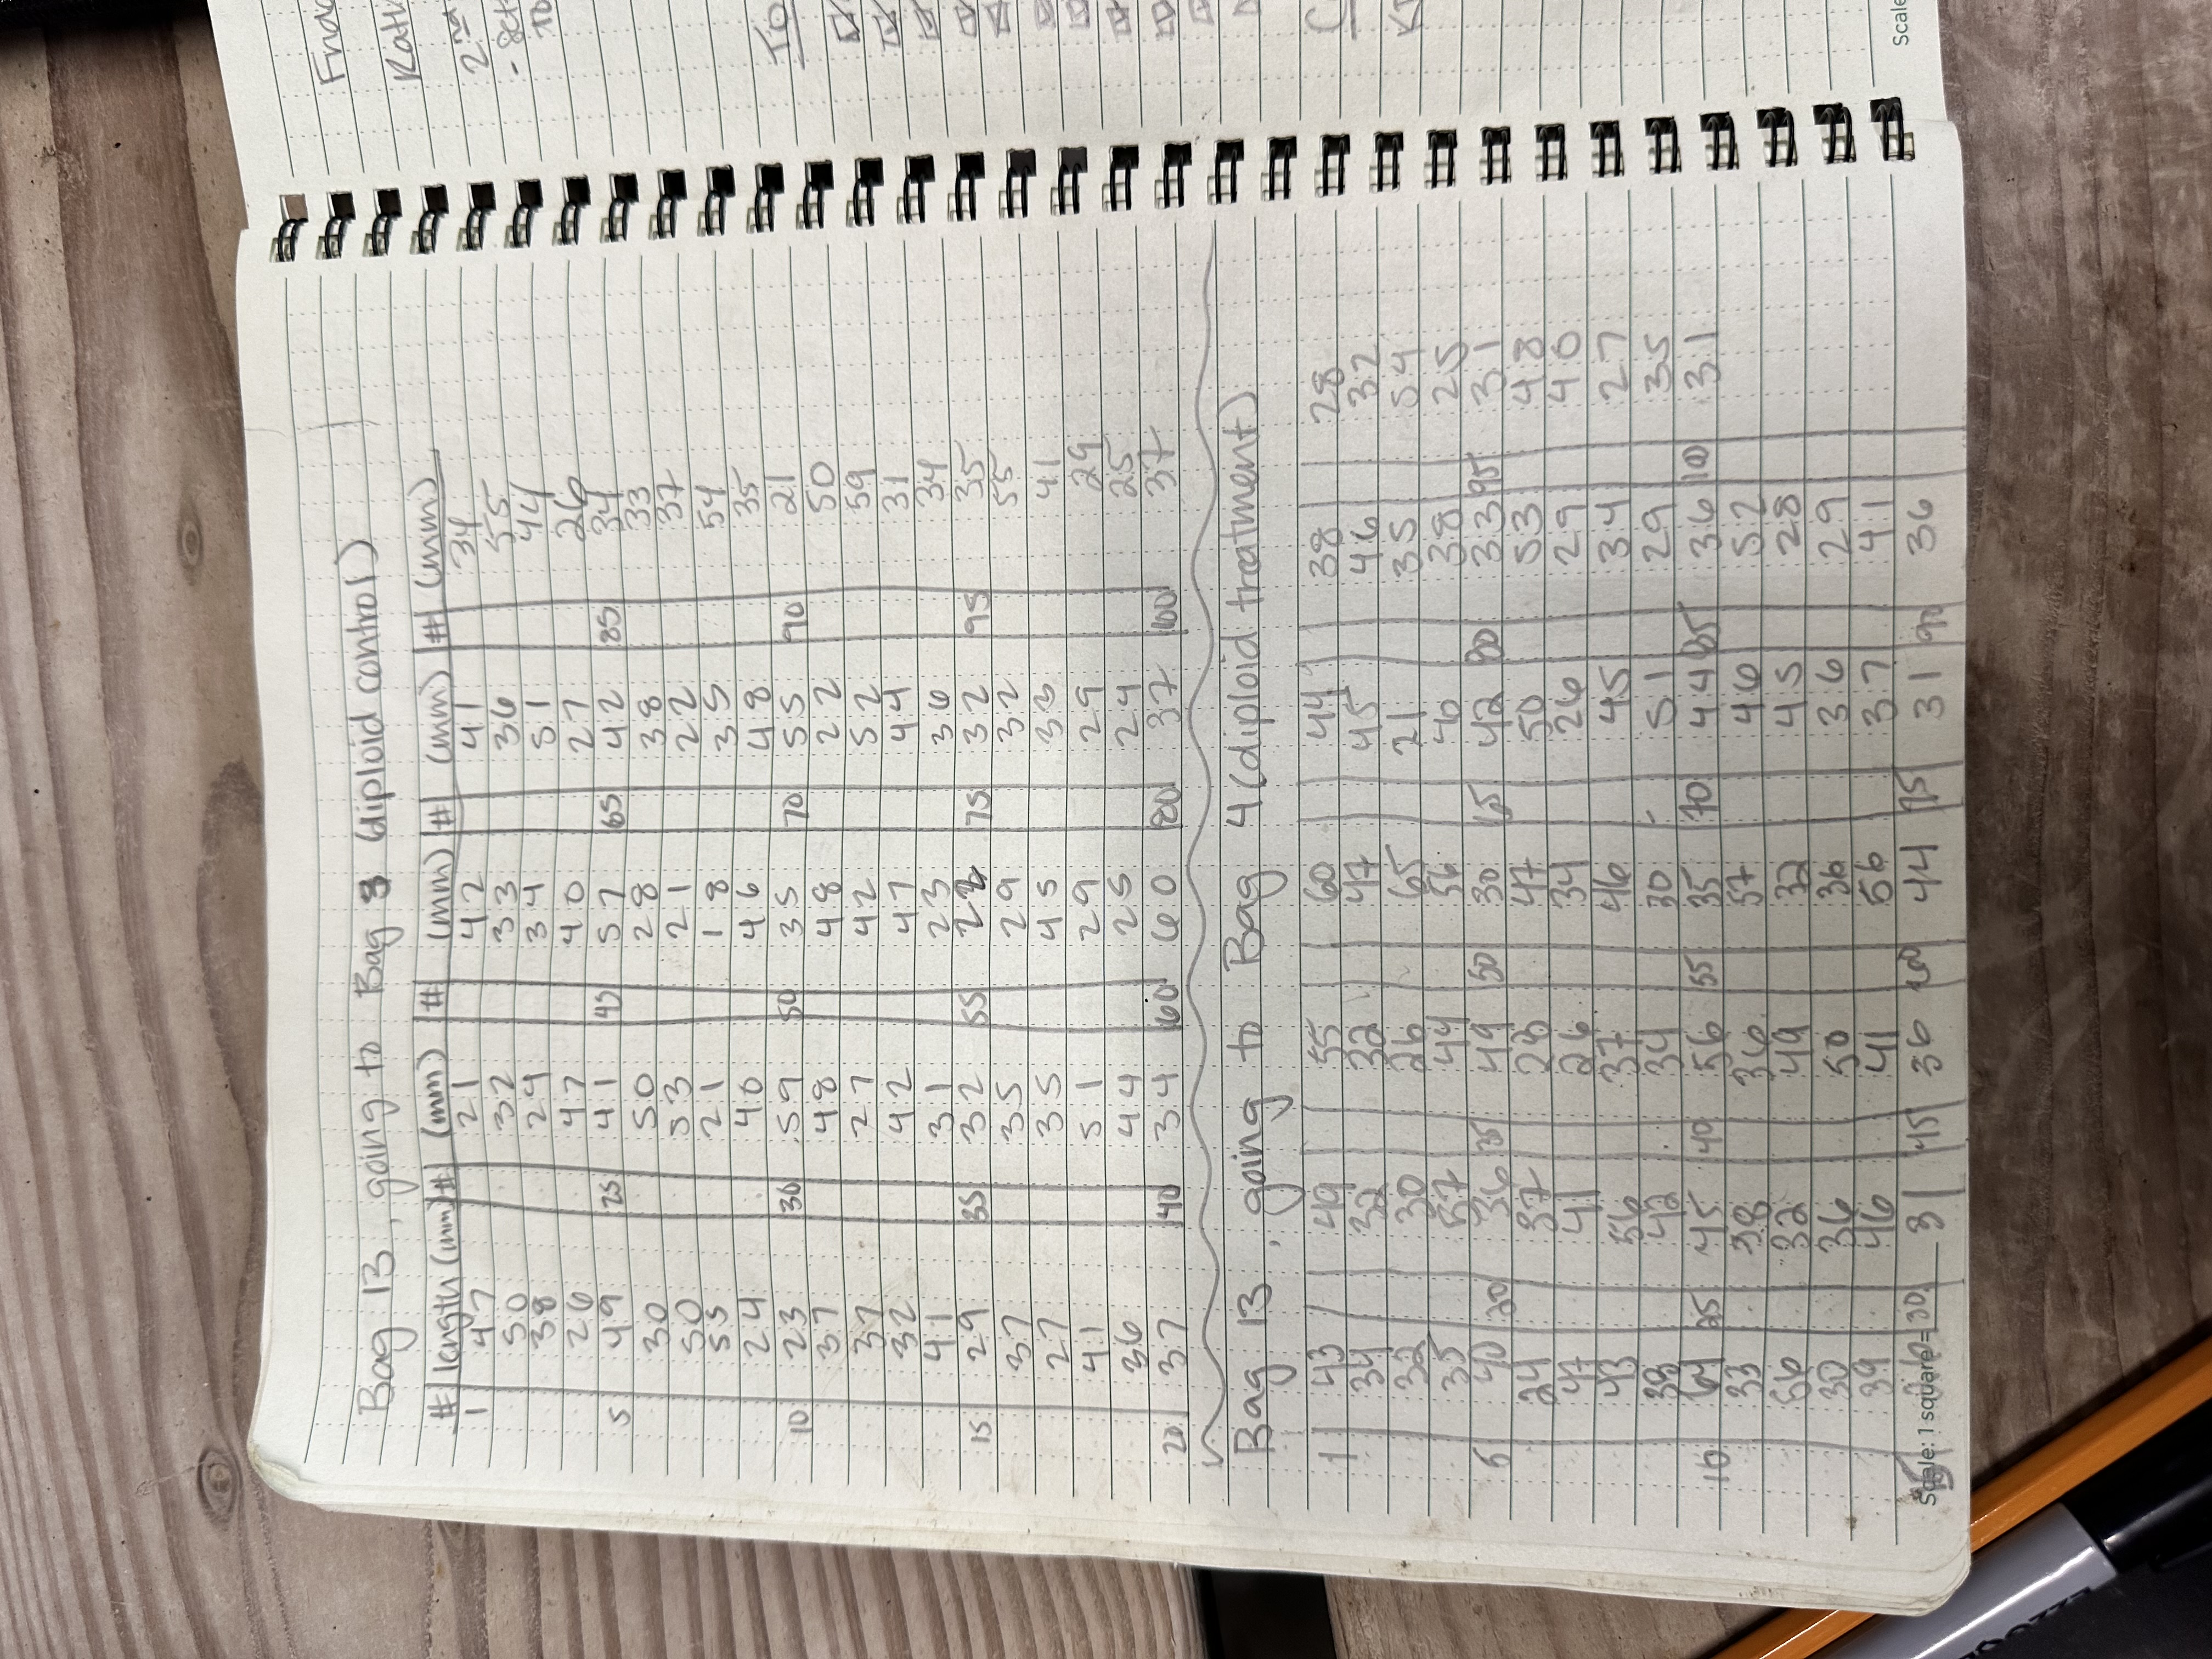 Bag 13, going to Bag 3 (diploid control)
# length (mm) # (mm) # (mm) # (mm) # (mm)
1 47 21 42 41 34
50 32 33 36 55
38 29 34 51 44
26 47 40 27 26
5 49 25 41 45 57 65 42 85 34
30 50 28 38 33
50 53 21 22 37
55 21 18 35 54
24 40 46 48 35
10 23 30 59 50 35 70 55 90 21
37 48 48 22 50
37 27 42 52 59
32 42 47 44 31
41 31 23 36 34
15 29 35 32 55 22 75 32 95 35
37 35 29 32 55
27 35 45 33 41
41 51 29 29 29
36 44 25 24 25
20 37 40 34 60 60 80 37 100 37
Bag 13, going to Bag 4 (diploid treatment)
1 43 49 55 60 44 38 28
34 32 32 47 45 46 32
32 30 26 65 21 35 54
35 57 44 56 40 38 25
5 40 20 36 35 49 50 30 65 42 80 33 95 31
24 37 28 47 50 53 48
47 41 26 34 26 29 40
43 56 37 46 45 34 27
38 42 34 30 51 29 35
10 64 25 45 40 56 55 35 70 44 85 36 100 31
33 38 36 57 46 52
56 32 49 32 45 28
30 36 50 36 36 29
39 46 41 56 37 41
15 30 31 45 36 60 44 75 31 90 36
Scale: 1 square =
Frid
Rath
2nd
- Set
to
TO
C
Scale